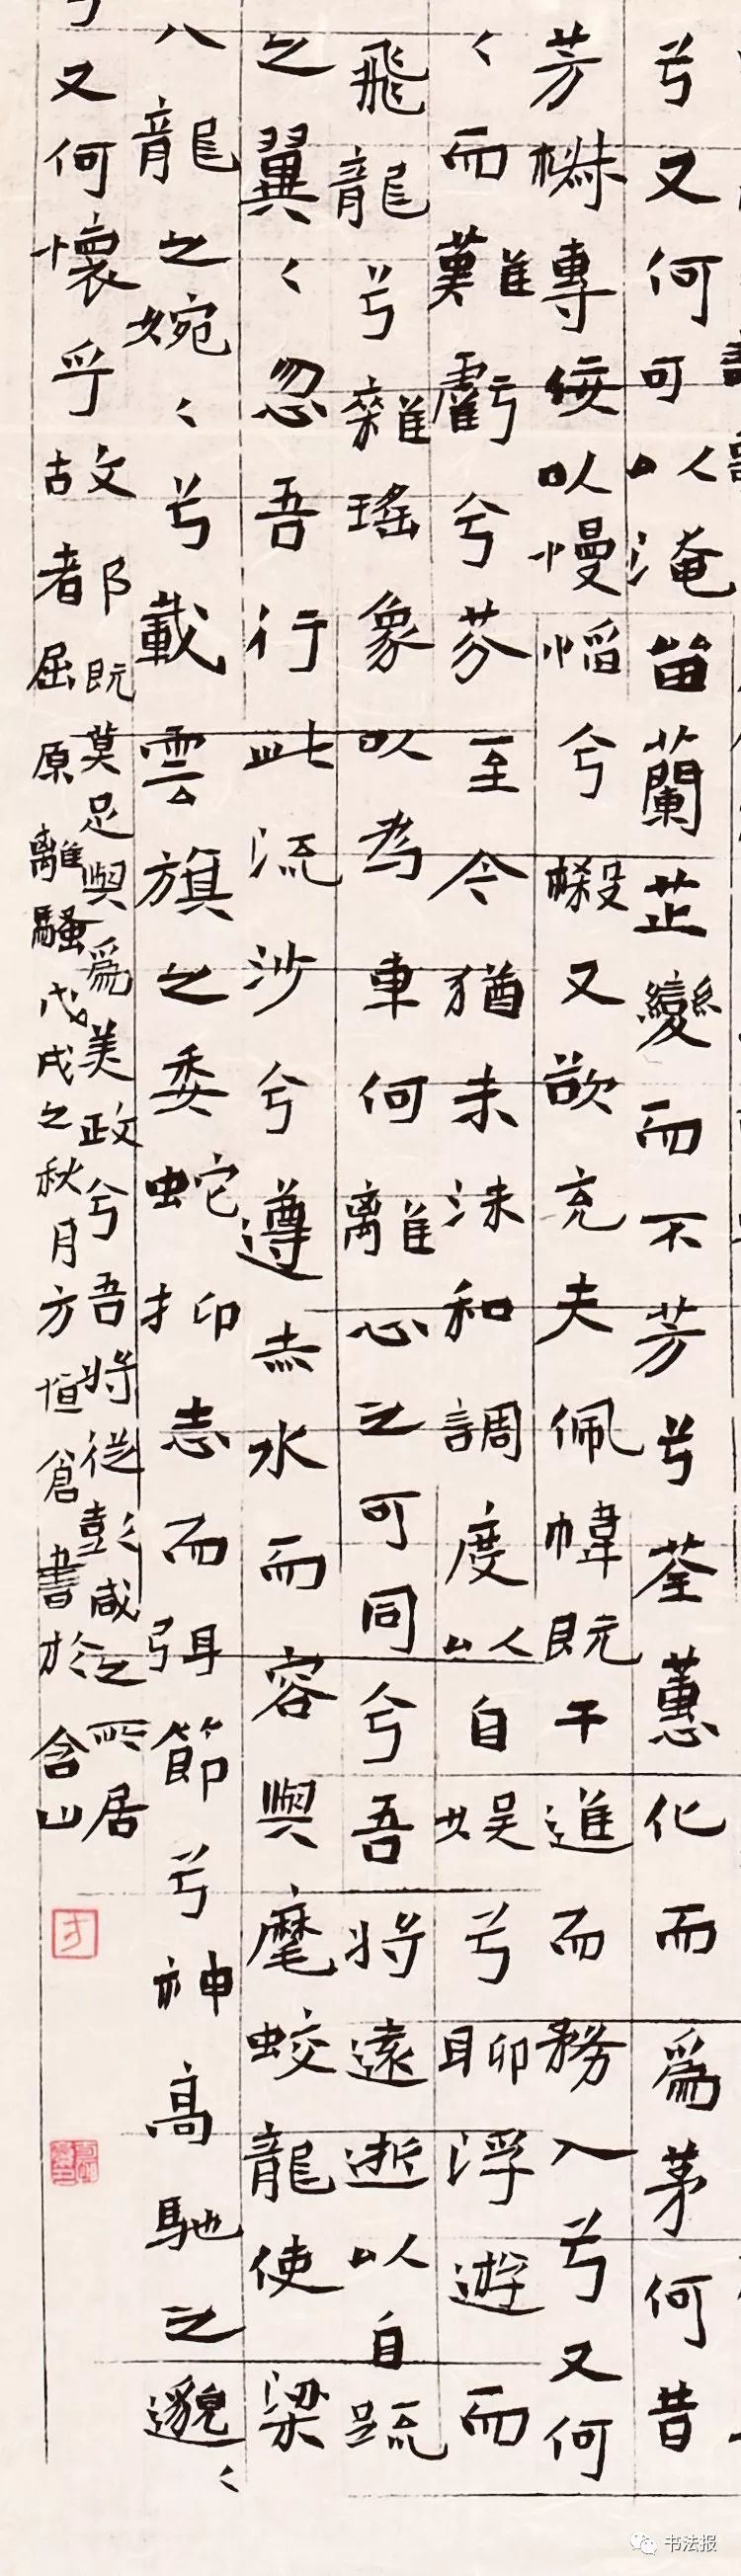 兮又何可以淹留蘭芷變而不芳兮荃蕙化而為茅何昔
芳椒專佞以慢慆兮樧又欲充夫佩幃既干進而務入兮又何
〻而難虧兮芬至今猶未沬和調度以自娱兮聊浮遊而
飛龍兮雜瑤象以為車何離心之可同兮吾將遠逝以自疏
之翼〻忽吾行此流沙兮遵赤水而容與麾蛟龍使梁
八龍之婉〻兮載雲旗之委蛇抑志而弭節兮神高馳之邈〻
兮又何懷乎故都既莫足與為美政兮吾將從彭咸之所居
古文都屈原離騷戊戌之秋月方恒倉書於含山
书法报